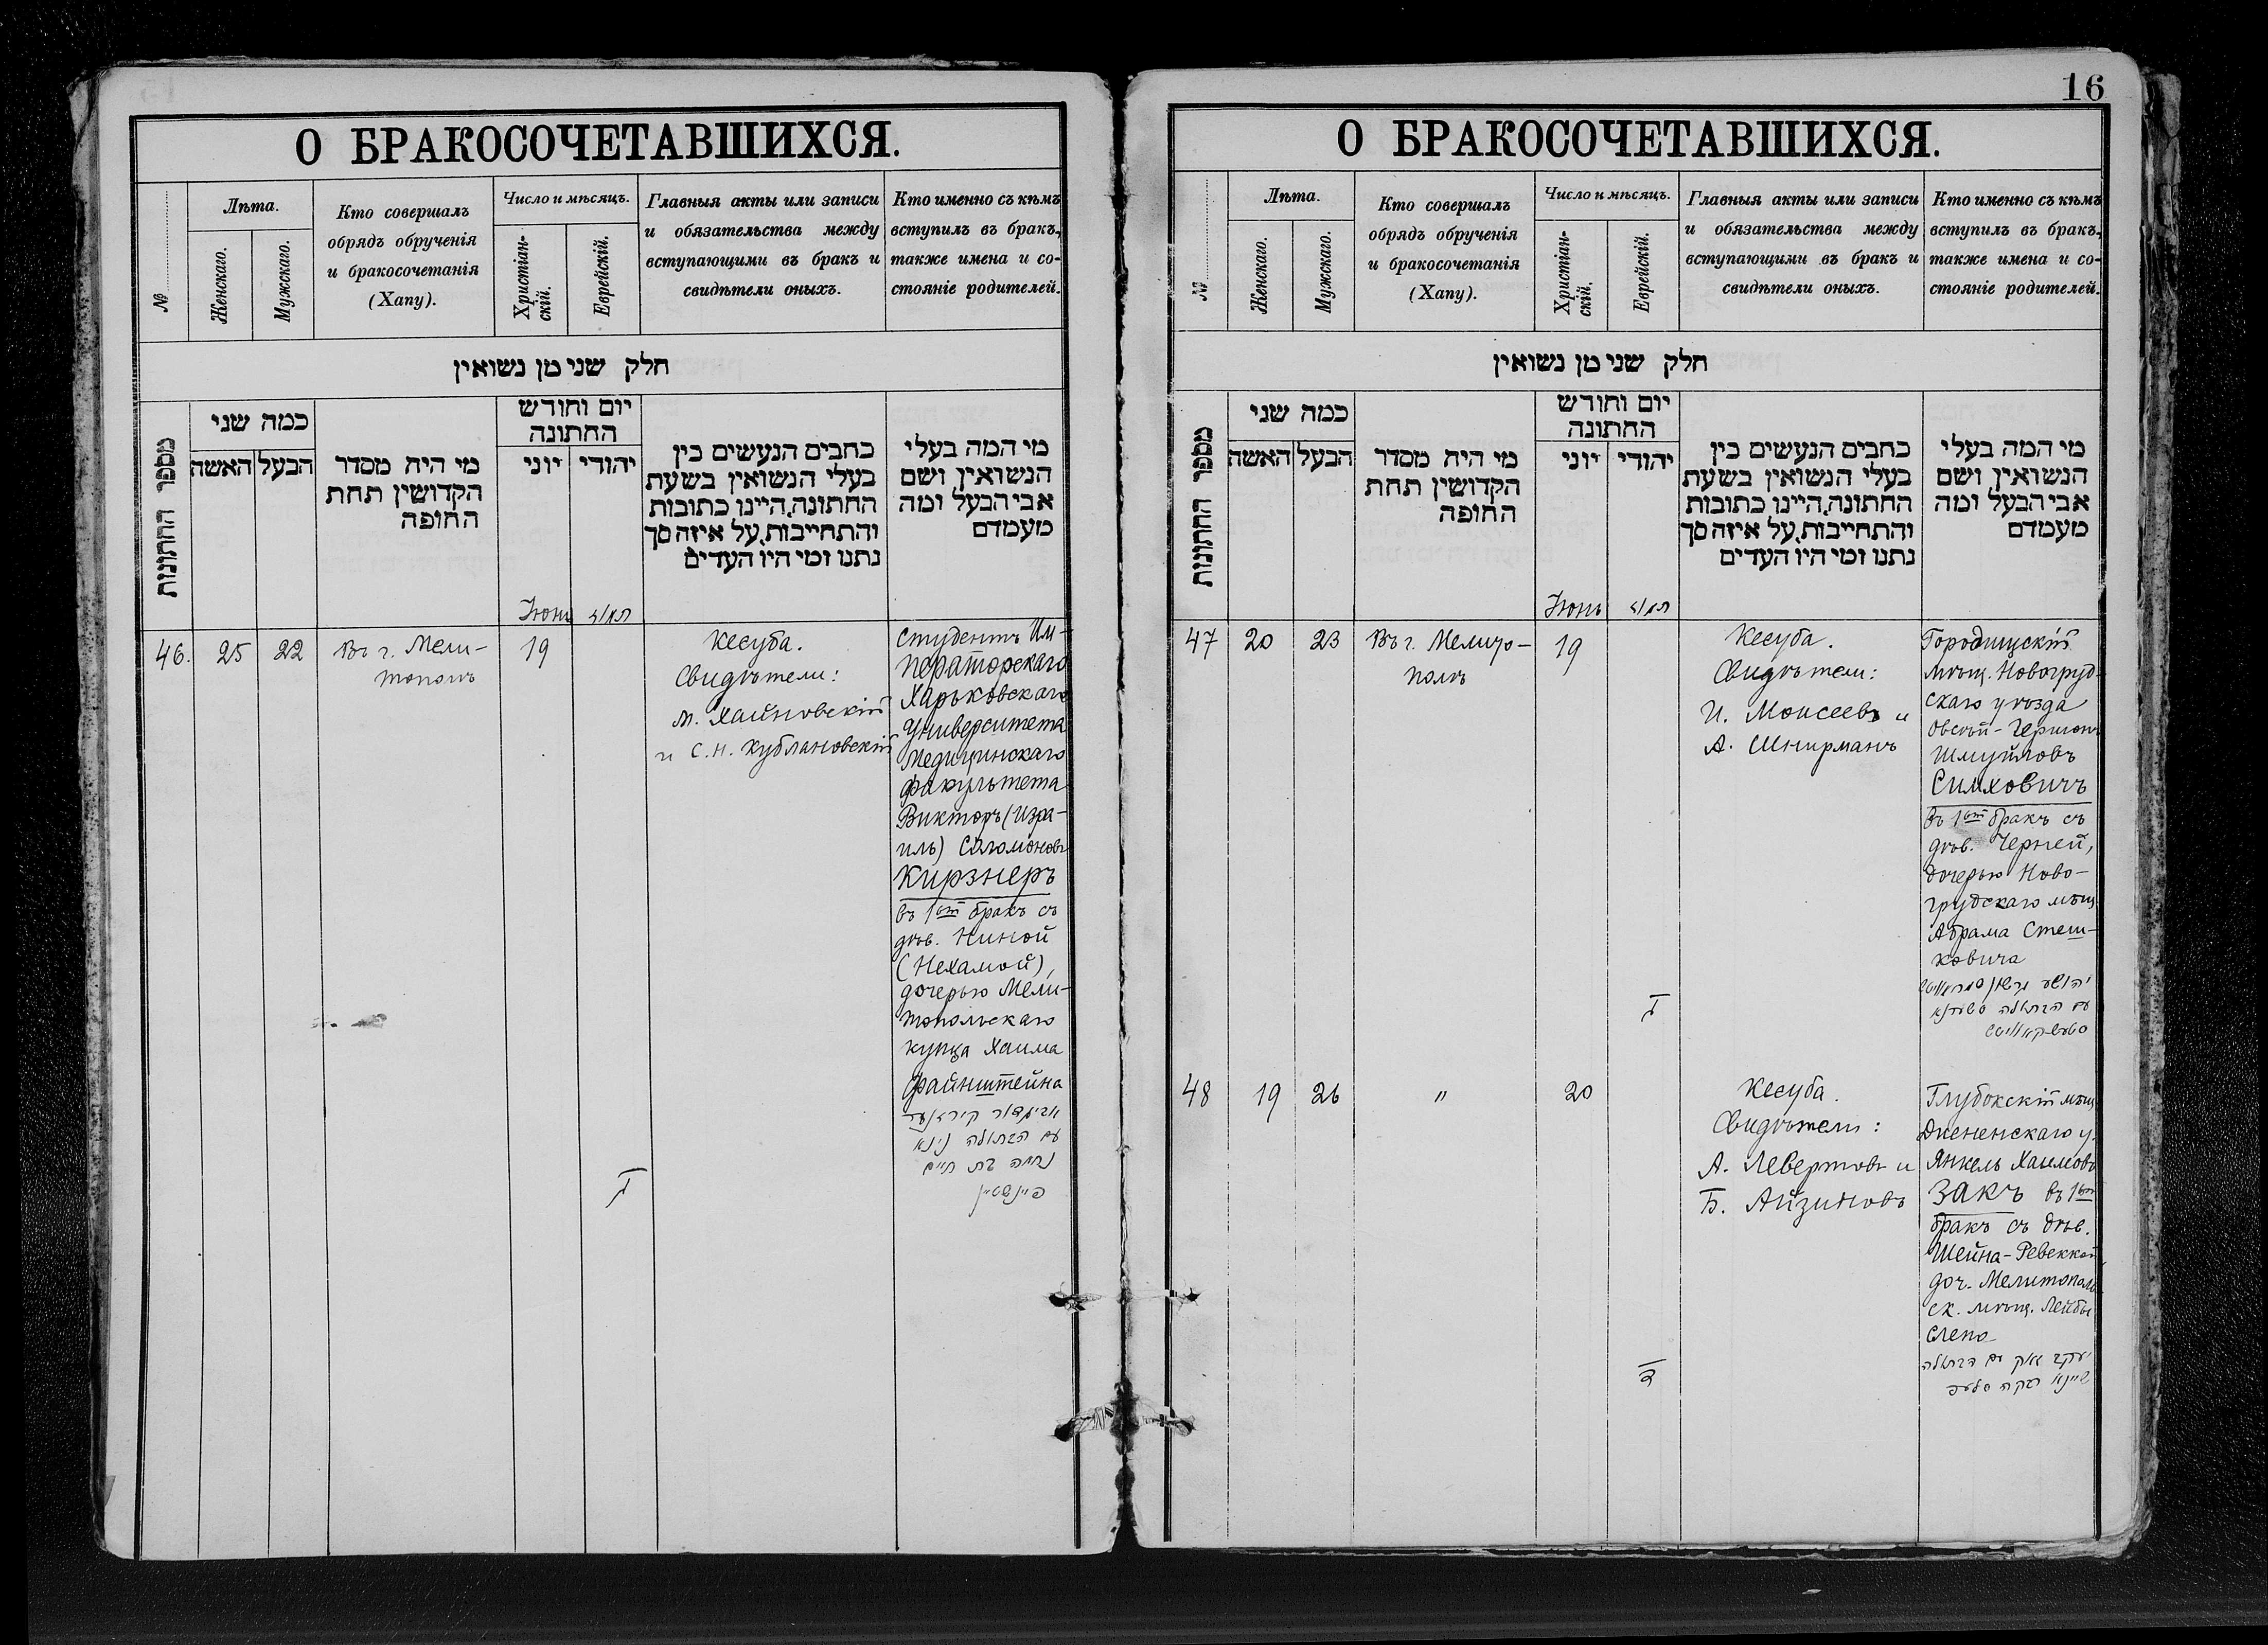 О БРАКОСОЧЕТАВШИХСЯ.
№
Лѣта.
Женскаго.
Мужскаго.
Кто совершалъ
обрядъ обрученія
и бракосочетанія
(Хапу).
Число и мѣсяцъ.
Христіан-
скій.
Еврейскій.
Главныя акты или записи
и обязательства между
вступающими въ бракъ и
свидѣтели оныхъ.
Кто именно съ кѣмъ
вступилъ въ бракъ,
также имена и со-
стояніе родителей.
חלק שני מן נשואין
מספר החתונות
כמה שני
האשה
הבעל
מי היה מסדר
הקדושין תחת
החופה
יום וחודש
החתונה
יוני
יהודי
כתבים הנעשים בין
בעלי הנשואין בשעת
החתונה, היינו כתובות
והתחייבות, על איזה סך
נתנו ומי היו העדים
מי המה בעלי
הנשואין ושם
אבי הבעל ומה
מעמדם
Іюнь
תמוז
46.
25
22
Въ г. Мели-
тополѣ
19
ג
Кесуба.
Свидѣтели:
М. Хайновскій
и С. Н. Кублановскій
Студентъ Им-
ператорскаго
Харьковскаго
Университета
Медицинскаго
факультета
Викторъ (Изра-
иль) Соломоновъ
Кирзнеръ
въ 1ый бракъ съ
дѣв. Ниной
(Нехамой),
дочерью Мели-
топольскаго
купца Хаима
Файнштейна
אביגדור קירזנער
עם הבתולה נינא
נחמה בת חיים
פיינשטיין
16
О БРАКОСОЧЕТАВШИХСЯ.
№
Лѣта.
Женскаго.
Мужскаго.
Кто совершалъ
обрядъ обрученія
и бракосочетанія
(Хапу).
Число и мѣсяцъ.
Христіан-
скій.
Еврейскій.
Главныя акты или записи
и обязательства между
вступающими въ бракъ и
свидѣтели оныхъ.
Кто именно съ кѣмъ
вступилъ въ бракъ,
также имена и со-
стояніе родителей.
חלק שני מן נשואין
מספר החתונות
כמה שני
האשה
הבעל
מי היה מסדר
הקדושין תחת
החופה
יום וחודש
החתונה
יוני
יהודי
כתבים הנעשים בין
בעלי הנשואין בשעת
החתונה, היינו כתובות
והתחייבות, על איזה סך
נתנו ומי היו העדים
מי המה בעלי
הנשואין ושם
אבי הבעל ומה
מעמדם
Іюнь
תמוז
47
20
23
Въ г. Мелито-
полѣ
19
ג
Кесуба.
Свидѣтели:
И. Моисеевъ и
А. Шнирманъ
Городищскій
мѣщ. Новогруд-
скаго уѣзда
Овсѣй-Гершонъ
Шмуйловъ
Симховичъ
въ 1ый бракъ съ
дѣв. Черней,
дочерью Ново-
грудскаго мѣщ.
Абрама Стеш-
ковича
יהושע גרשון
עם הבתולה
48
19
26
"
20
ד
Кесуба.
Свидѣтели:
А. Левертовъ и
Б. Айзиновъ
Глубокскій мѣщ.
Дисненскаго у.
Янкель Хаимовъ
Закъ въ 1ый
бракъ съ дѣв.
Шейна-Ревеккой,
доч. Мелитополь-
ск. мѣщ. Лейбы
Слепо
יעקב זאק עם הבתולה
שיינא רבקה